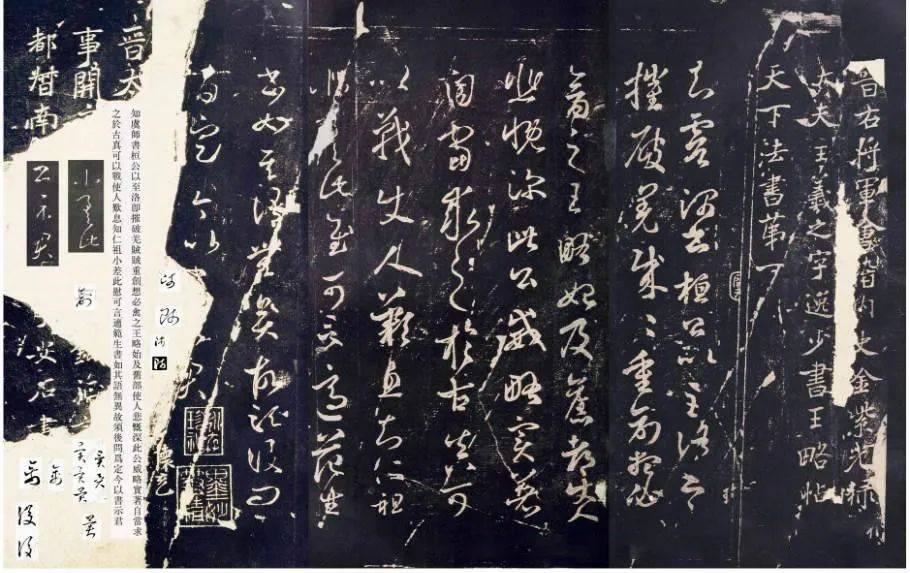 晉右将軍會稽内史金紫光禄
大夫王羲之字逸少書王略帖
天下法書第一
知虞帥書桓公以至洛即
摧破羌賊賊重創想必
禽之王略始及舊都使人
悲慨深此公威略實著
自當求之於古真可
以戰使人歎息知仁祖
小差此慰可言適范生
書如其語無異故須後問
為定今以
知虞帥書桓公以至洛卽摧破羌賊賊重創想必禽之王略始及舊都使人悲慨深此公威略實著自當求
之於古真可以戰使人歎息知仁祖小差此慰可言適範生書如其語無異故須後問爲定今以書示君
晉太
事開
都督南
安石書